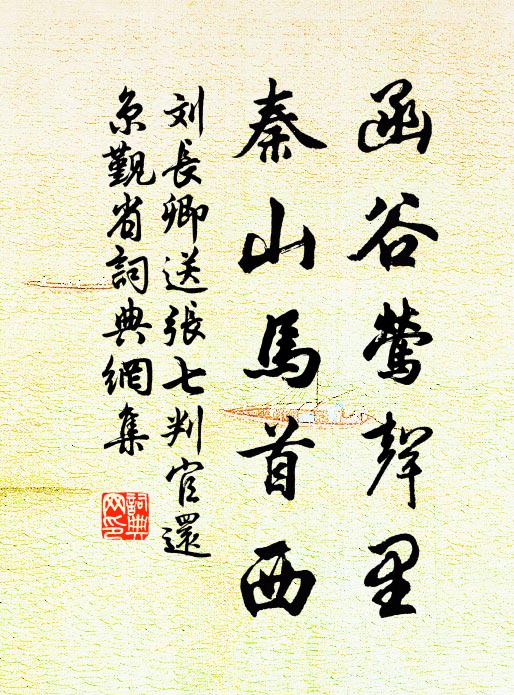 函谷莺聲里
秦山馬首西
刘長卿送張七判官還
京覲省詞典網集
詞典
网印